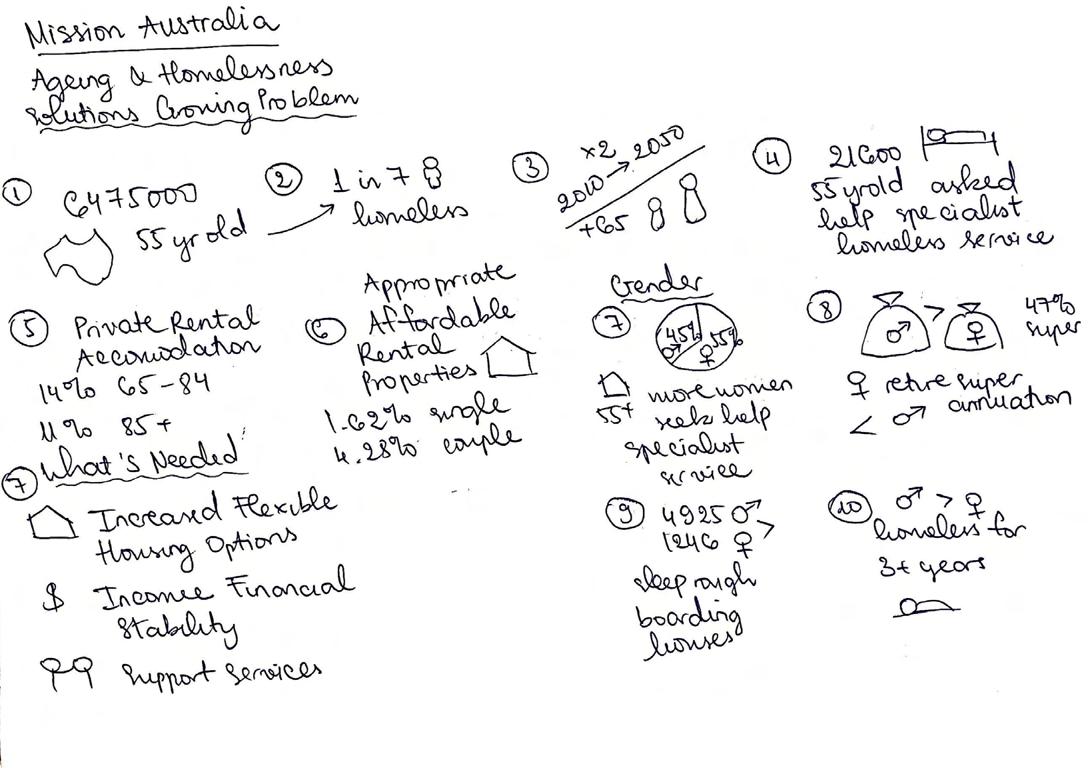 Mission Australia
Ageing & Homelessness
Solutions Growing Problem
① 6475000
55 yr old
② 1 in 7
homeless
③ x2
2010 → 2050
+65
④ 21600
55 yr old asked
help specialist
homeless service
⑤ Private Rental
Accomodation
14% 65-84
11% 85+
⑥ Appropriate
Affordable
Rental
Properties
1.62% single
4.28% couple
Gender
⑦ 45% 55%
♂ ♀
more women
55+ seek help
specialist
service
⑧ ♂ > ♀ 47%
super
♀ retire super
< ♂ annuation
⑦ What's Needed
Increased Flexible
Housing Options
$ Income Financial
Stability
Support Services
⑨ 4925 ♂ >
1246 ♀
sleep rough
boarding
houses
⑩ ♂ > ♀
homeless for
3+ years